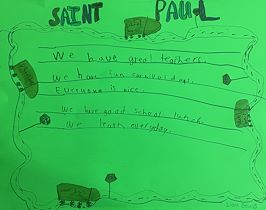 SAINT PAUL
We have great teachers.
We have fun carnival days.
Everyone is nice.
We have good school lunch.
We learn everyday.